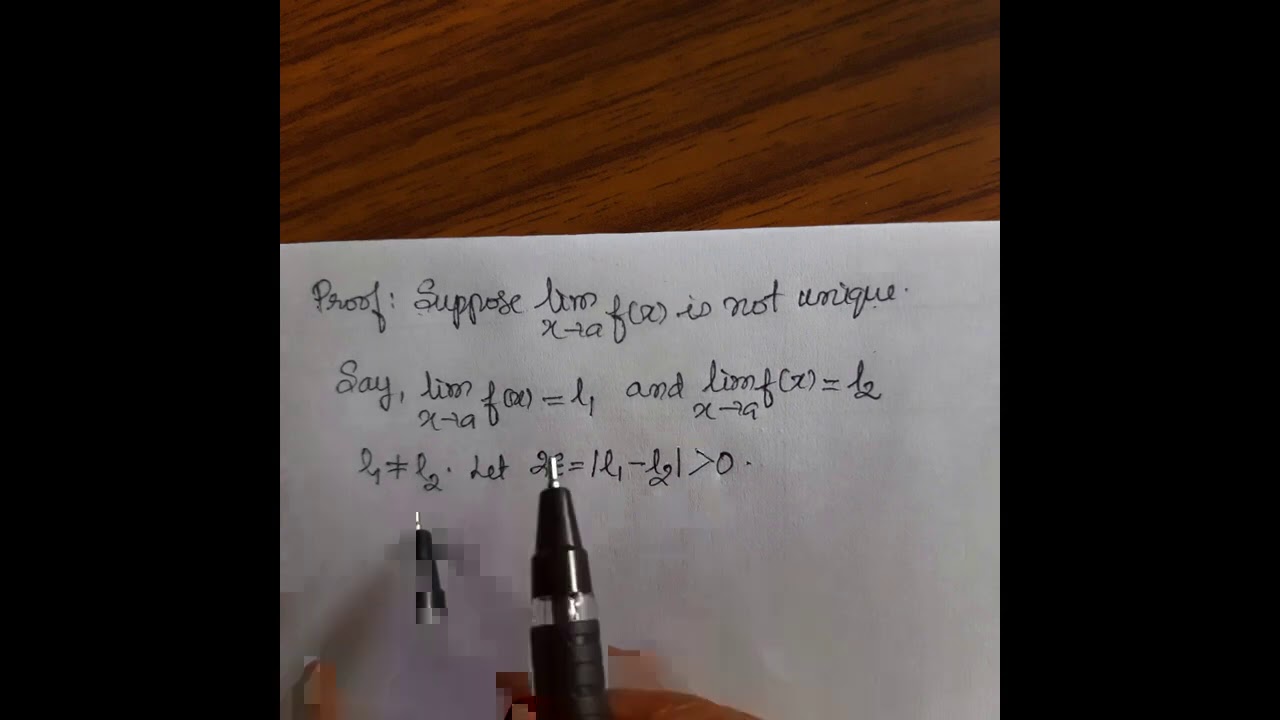 Proof: Suppose lim x→a f(x) is not unique.
Say, lim x→a f(x) = l₁ and lim x→a f(x) = l₂
l₁ ≠ l₂. Let 2ε = |l₁ - l₂| > 0.